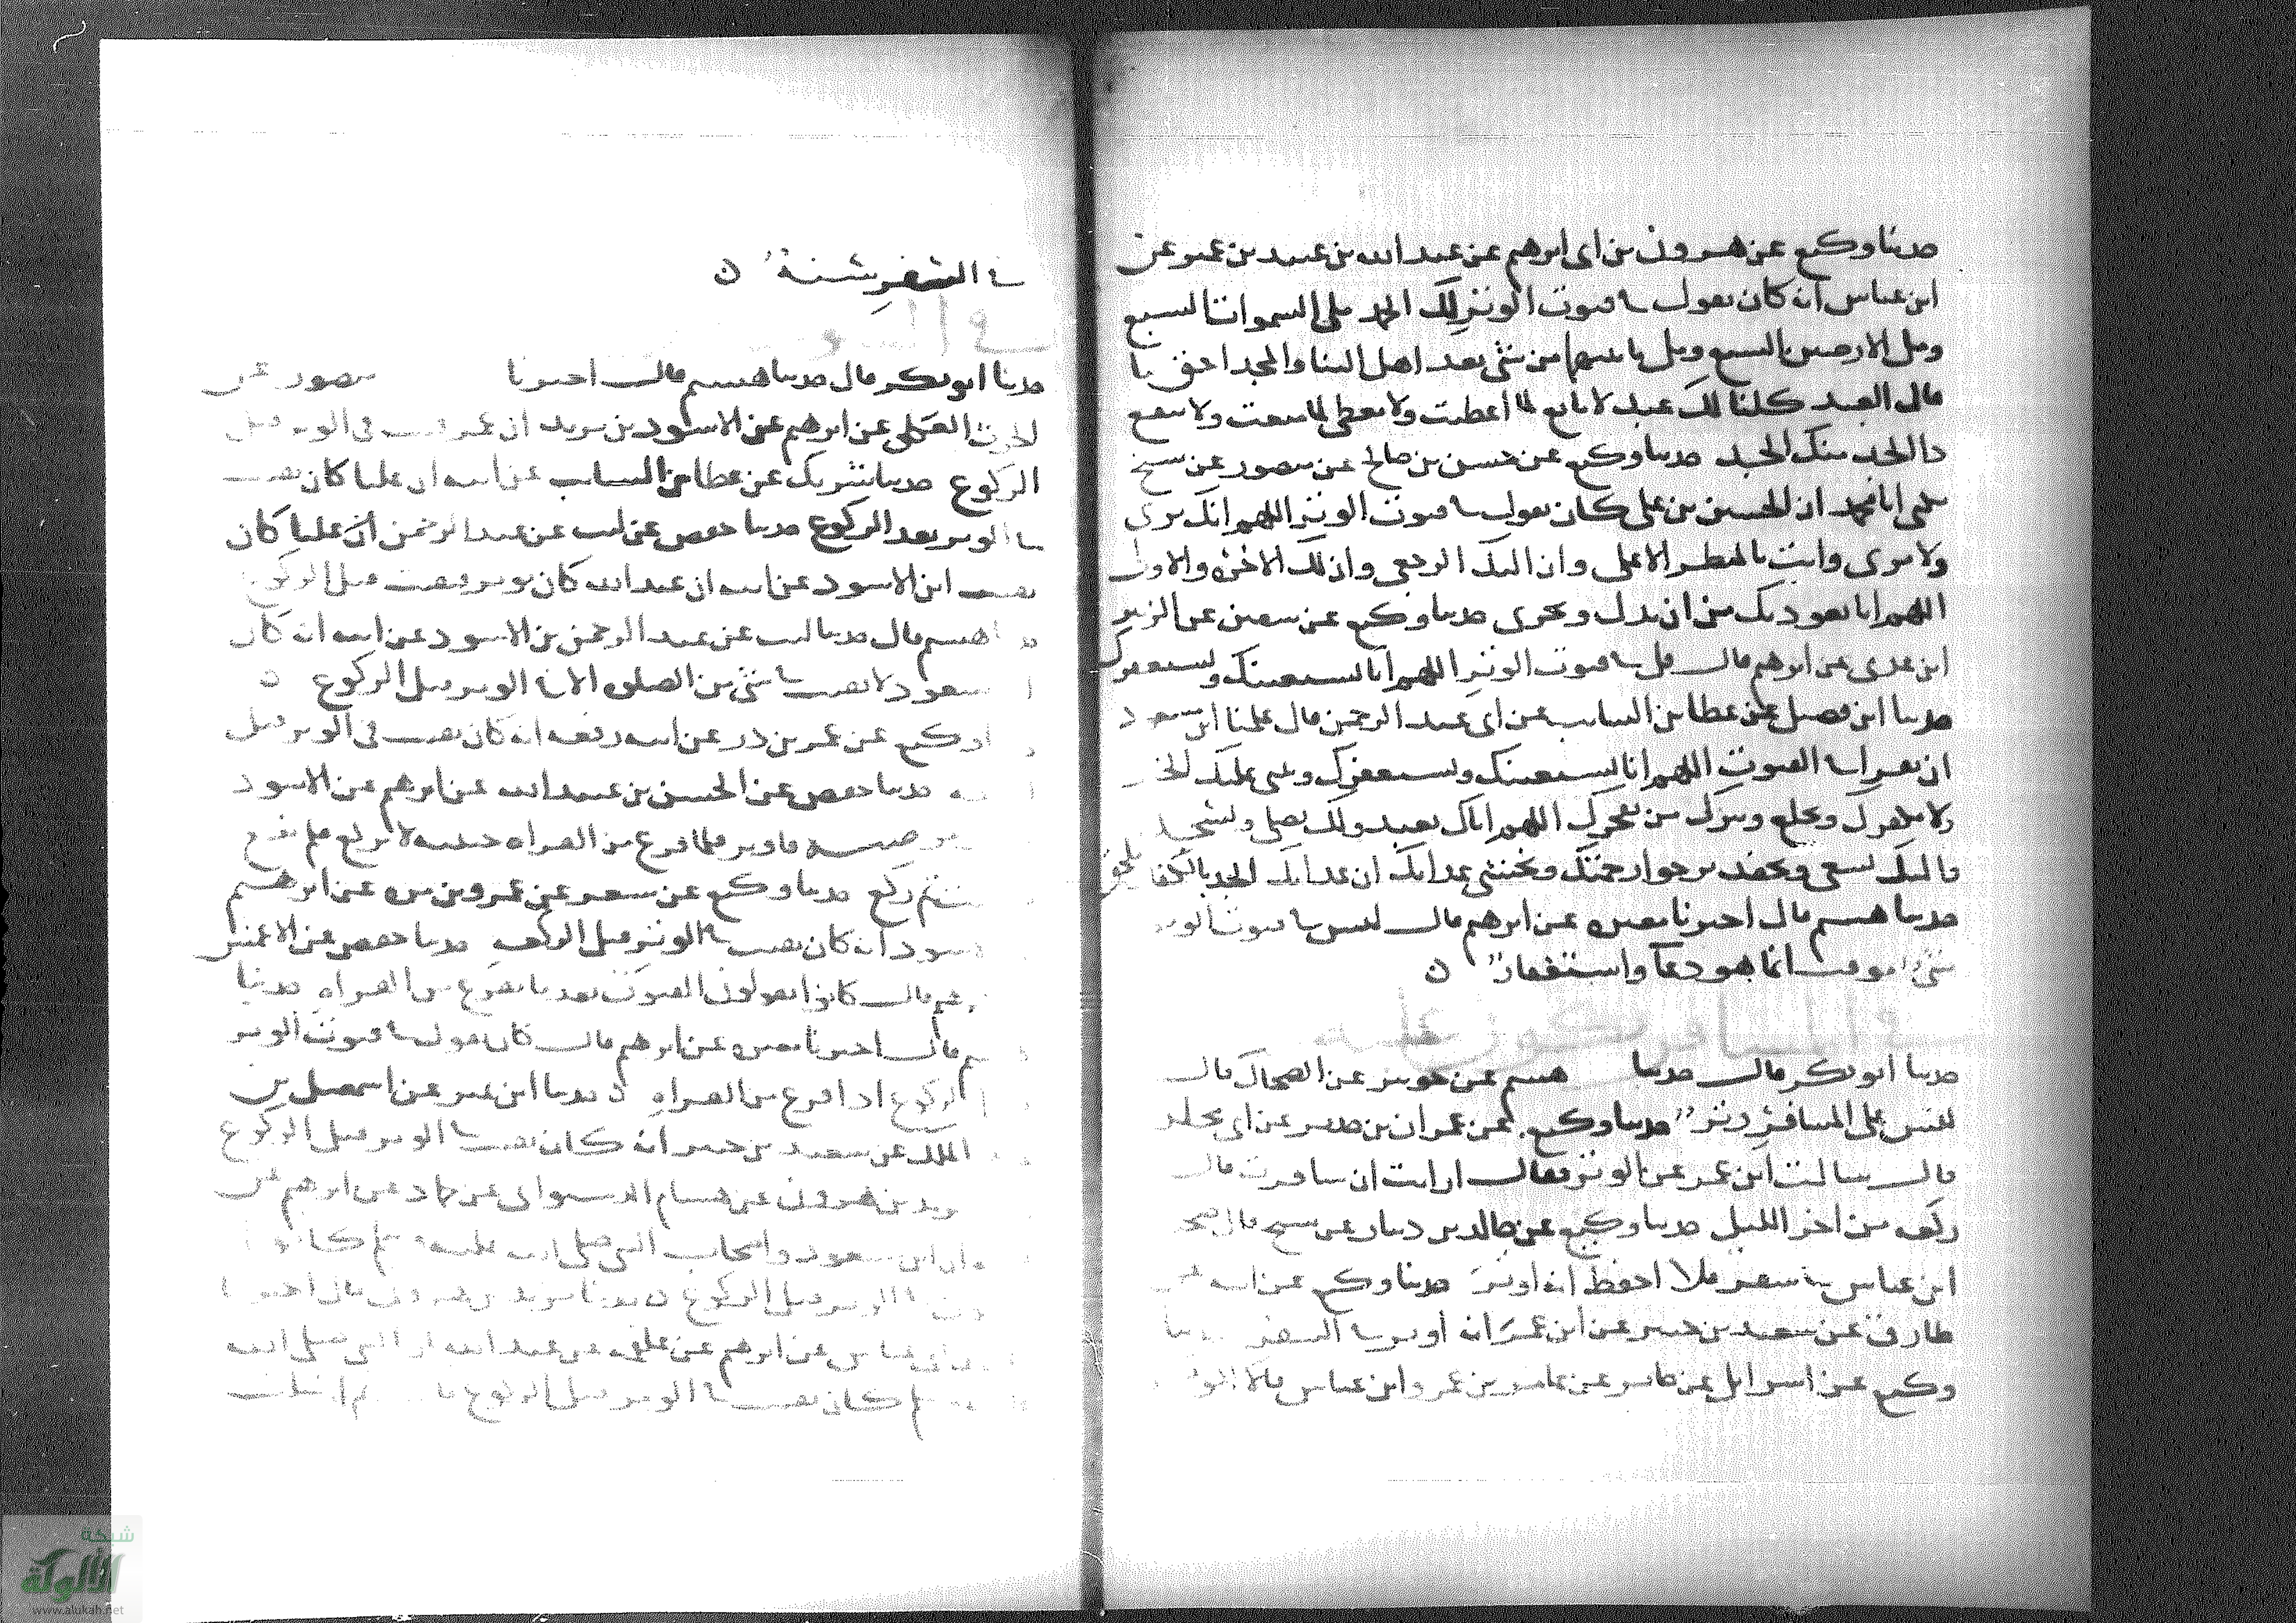 حدثنا وكيع عن هرون بن ابى ابرهيم عن عبد الله بن عبيد بن عمير عن
ابن عباس انه كان يقول فى قنوت الوتر لك الحمد ملى السموات السبع
ومل الارضين السبع ومل ما بينهما من شى بعد اهل الثنا والمجد احق ما
قال العبد كلنا لك عبد لا مانع لما اعطيت ولا معطى لما منعت ولا ينفع
ذا الجد منك الجد حدثنا وكيع عن حسن بن صالح عن منصور عن شيخ
يكنى ابا محمد ان الحسين بن على كان يقول فى قنوت الوتر اللهم انك ترى
ولا ترى وانت بالمنظر الاعلى وان اليك الرجعى وان لك الاخرة والاولى
اللهم انا نعوذ بك من ان نذل ونخزى حدثنا وكيع عن سفين عن الزبير
ابن عدى عن ابرهيم قال قل فى قنوت الوتر اللهم انا نستعينك ونستغفرك
حدثنا ابن فضيل عن عطا بن السايب عن ابى عبد الرحمن قال علمنا ابن مسعود
ان نقرا فى القنوت اللهم انا نستعينك ونستغفرك ونثنى عليك الخير
ولا نكفرك ونخلع ونترك من يفجرك اللهم اياك نعبد ولك نصلى ونسجد
واليك نسعى ونحفد نرجوا رحمتك ونخشى عذابك ان عذابك الجد بالكفار ملحق
حدثنا هشيم قال اخبرنا مغيرة عن ابرهيم قال ليس فى قنوت الوتر
شى موقت انما هو دعا واستغفار ن
حدثنا ابو بكر قال حدثنا هشيم عن جويبر عن الضحاك قال
ليس على المسافر وتر حدثنا وكيع عن عمران بن حدير عن ابى مجلز
قال سالت ابن عمر عن الوتر فقال ارايت ان سافرت قال
ركعه من اخر الليل حدثنا وكيع عن خالد بن دينار عن شيخ قال صحبت
ابن عباس فى سفر فلا احفظ انه اوتر حدثنا وكيع عن ابيه عن
طارق عن سعيد بن جبير عن ابن عمر انه اوتر فى السفر حدثنا
وكيع عن اسرايل عن جابر عن عامر بن عمر وابن عباس قالا الوتر
فى السفر سنة ن
حدثنا ابو بكر قال حدثنا هشيم قال اخبرنا منصور عن
الحرث العكلى عن ابرهيم عن الاسود بن يزيد ان عمر قنت فى الوتر قبل
الركوع حدثنا شريك عن عطا بن السايب عن ابيه ان عليا كان يقنت
فى الوتر بعد الركوع حدثنا حفص عن ليث عن عبد الرحمن ان عليا كان
يقنت ابن الاسود عن ابيه ان عبد الله كان يوتر فيقنت قبل الركوع
هشيم قال حدثنا ليث عن عبد الرحمن بن الاسود عن ابيه انه كان
مسعود لا يقنت فى شى من الصلوة الا فى الوتر قبل الركوع ن
وكيع عن عمر بن ذر عن ابيه رفعه انه كان يقنت فى الوتر قبل
حدثنا حفص عن الحسن بن عبيد الله عن ابرهيم عن الاسود
فاوتر فلما فرغ من القراه
ثم ركع حدثنا وكيع عن مسعر عن عمرو بن مرة عن ابرهيم
الاسود انه كان يقنت فى الوتر قبل الركعه حدثنا حفص عن الاعمش
ابرهيم قال كانوا يقولون القنوت بعد ما يفرغ من القراه حدثنا
هشيم قال اخبرنا مغيره عن ابرهيم قال كان يقول فى قنوت الوتر
الركوع اذا فرغ من القراه ن حدثنا ابن نمير عن اسمعيل بن
الملك عن سعيد بن جبير انه كان يقنت فى الوتر قبل الركوع
يزيد بن هرون عن هشام الدستوائى عن حماد عن ابرهيم عن
ان ابن مسعود واصحاب النبى صلى الله عليه كانوا
الوتر قبل الركوع ن حدثنا يزيد بن هرون قال اخبرنا
عن ابرهيم عن علقمه عن عبد الله ان النبى صلى الله
كان يقنت فى الوتر قبل الركوع